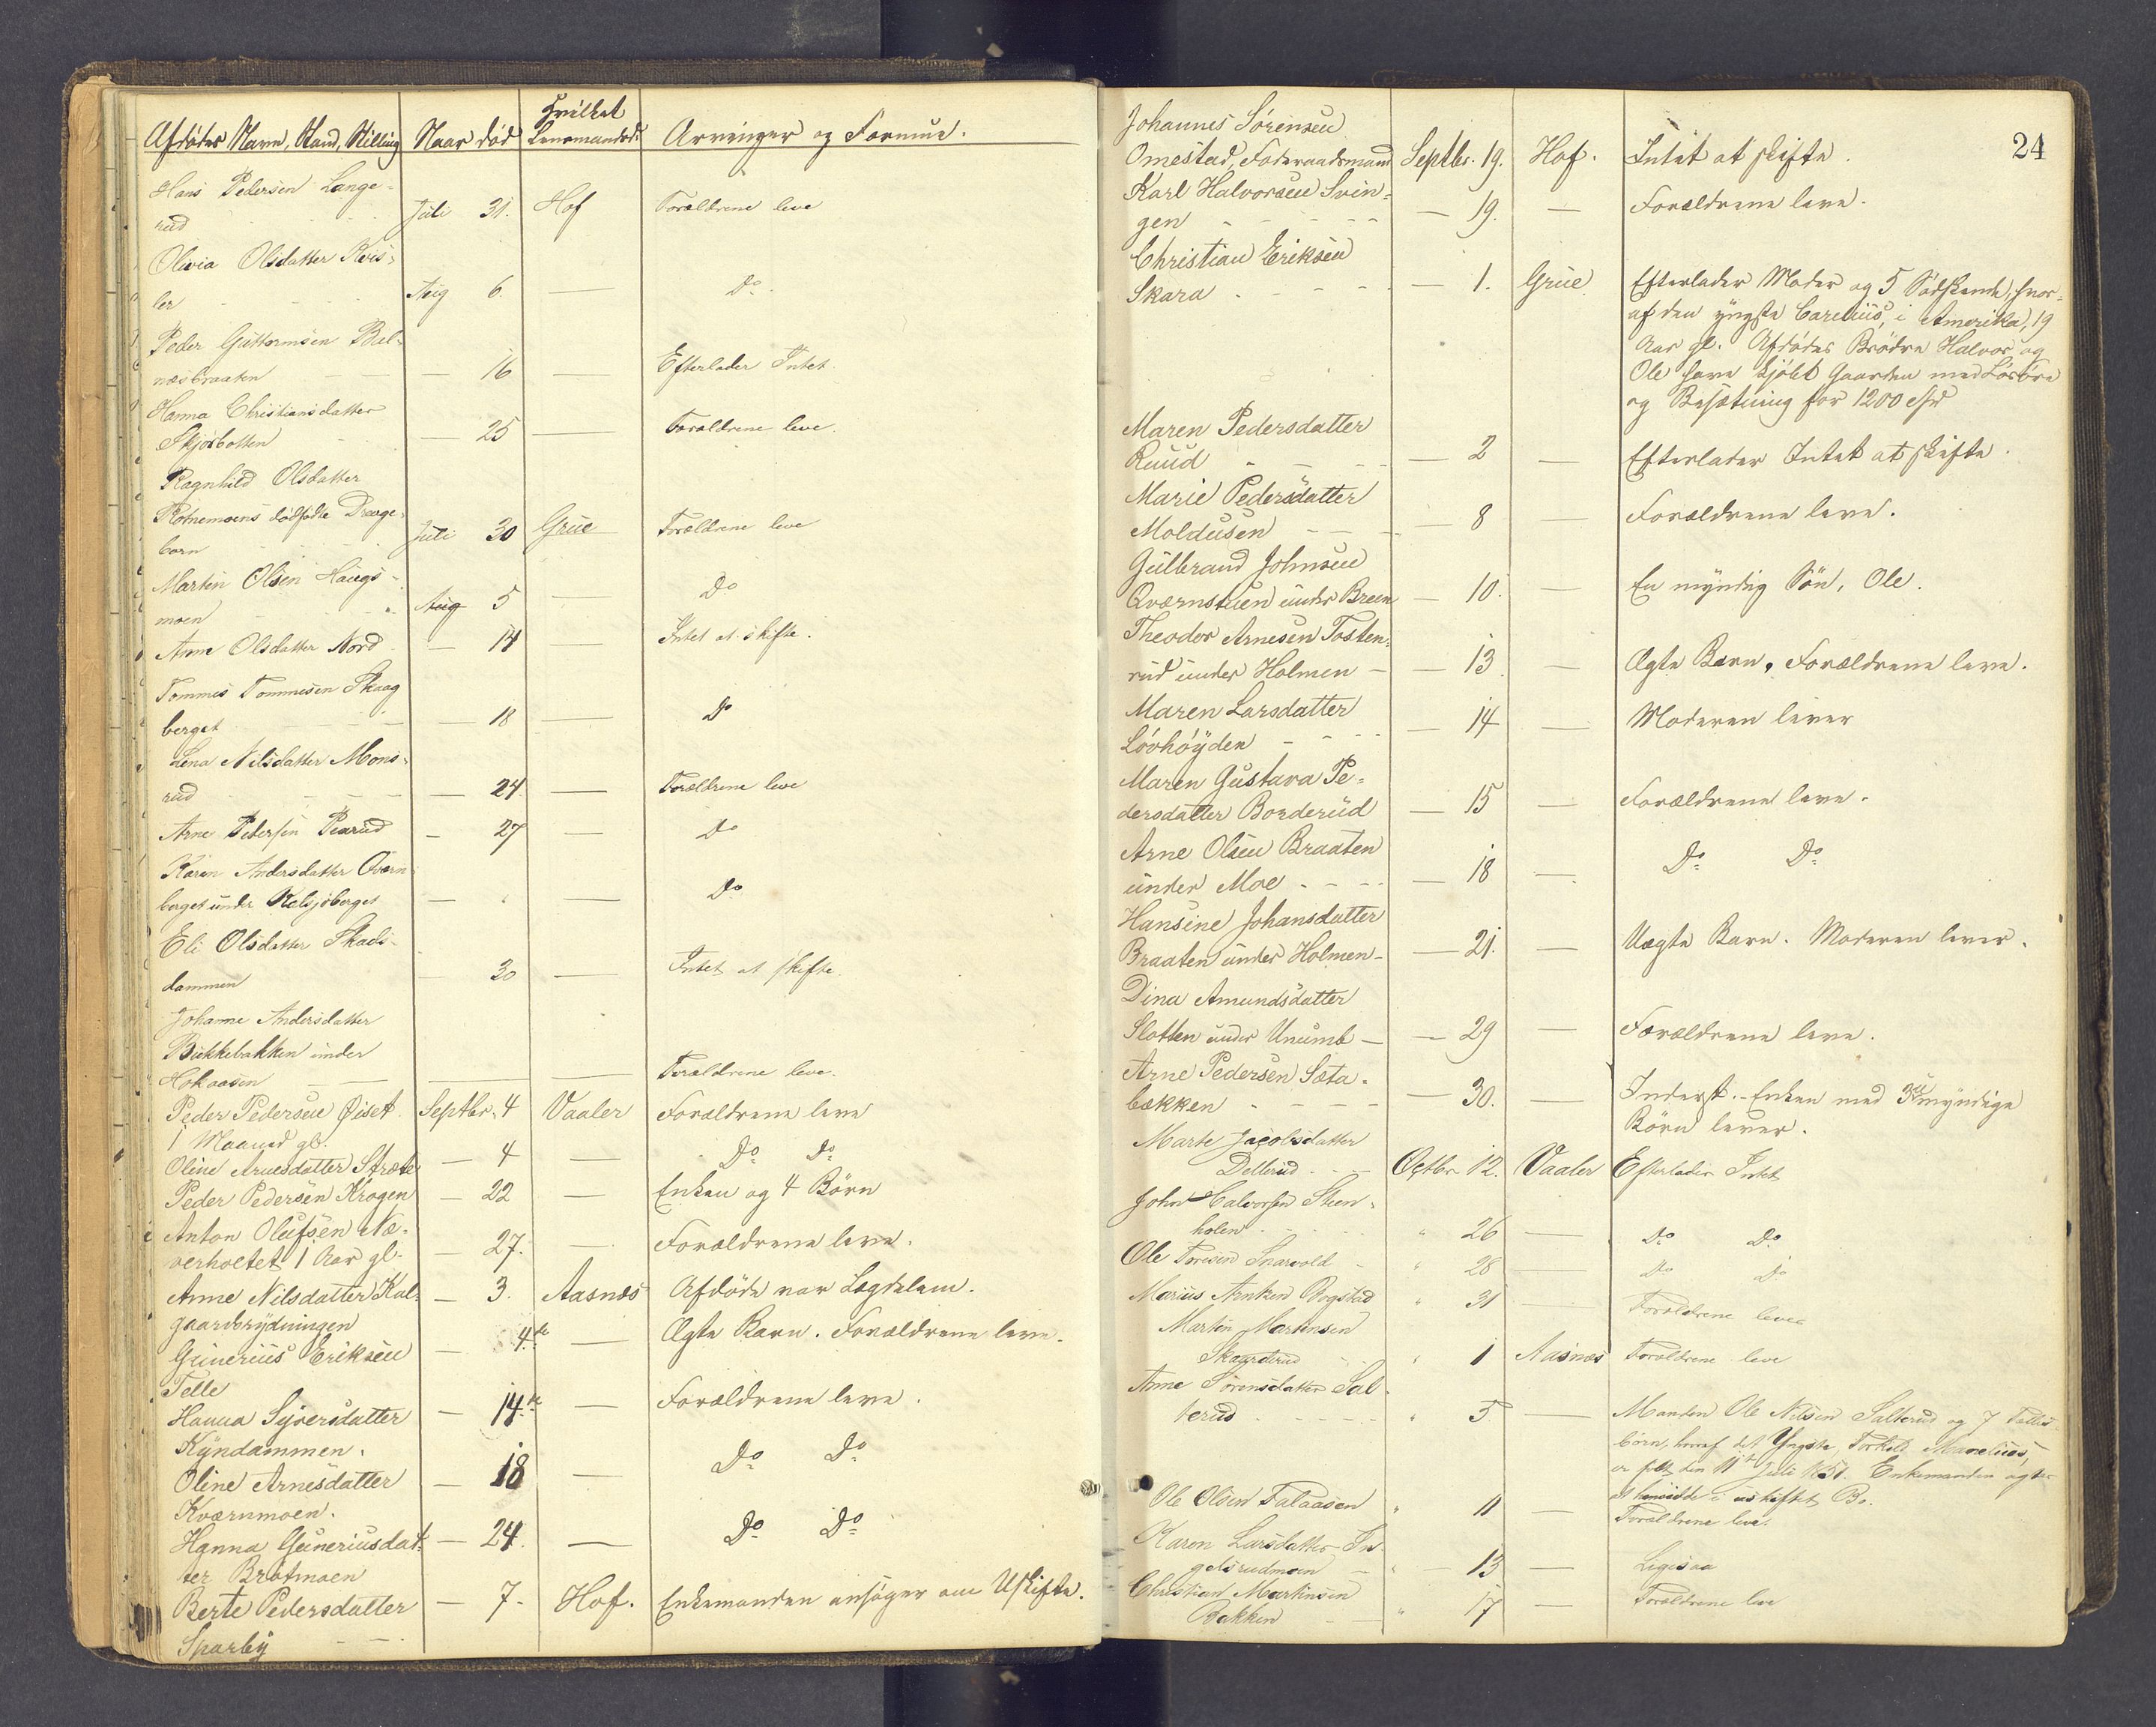 Hvilket
Afdødes Navn, Stand, Stilling Naar død Lensmandsd: Arvinger og Formue.
Hans Pedersen Lange-
rud Juli 31. Hof Forældrene leve
Olivia Olsdatter Kvis-
ler Aug 6. — Do.
Peder Guttormsen Bul-
næsbraaten — 16 — Efterlader Intet.
Hanna Christiansdatter
Skjørbotten — 25 — Forældrene leve.
Ragnhild Olsdatter
Rotnemoens dødfødte Drenge-
barn Juli 30 Grue Forældrene leve
Martin Olsen Haugs-
moen Aug 5 — Do
Anne Olsdatter Nord — 14 — Intet at skifte.
Tommes Tommesen Skaag
berget — 18 — Do
Lena Nilsdatter Mons-
rud — 24. — Forældrene leve
Arne Pedersen Pearud — 27 — Do
Karen Andersdatter Qværn
berget under Kelsjøberget — " — Do
Eli Olsdatter Skads-
dammen — 30 — Intet at skifte.
Johanne Andersdatter
Bukkebakken under
Hokaasen — — Forældrene leve.
Peder Pedersen Øiset Septbr. 4 Vaaler Forældrene leve
1 Maaned gl.
Oline Arnesdatter Stræte — 4 — Do Do
Peder Pedersen Krogen — 22 — Enken og 4 Børn
Anton Olufsen Næ-
verholtet 1 Aar gl. — 27. — Forældrene leve.
Anne Nilsdatter Kal- — 3. Aasnæs Afdøde var Lægdslem.
gaardsrydningen
Gunerius Eriksen — 4de — Ægte Barn. Forældrene leve.
Telle
Hanna Syversdatter — 14de — Forældrene leve.
Kyndammen.
Oline Arnesdatter — 18 — Do Do
Kværnmoen.
Hanna Guneriusdat- — 24. — Do Do
ter Bråtmoen
Berte Pedersdatter — 7. Hof. Enkemanden ansøger om Uskifte.
Sparby
24
Johannes Sørensen
Omestad, Føderaadsmand Septbr. 19. Hof. Intet at skifte.
Karl Halvorsen Svin-
gen — 19. — Forældrene leve.
Christian Eriksen
Skara — 1. Grue Efterlader Moder og 5 Sødskende, hvor-
af den yngste Carelius, i Amerika, 19
Aar gl. Afdødes Brødre Halvor og
Ole have kjøbt Gaarden med Løsøre
og Besætning for 1200 Spd
Maren Pedersdatter
Ruud — 2 — Efterlader Intet at skifte.
Marie Pedersdatter
Moldusen — 8 — Forældrene leve.
Gulbrand Johnsen
Qværnstuen under Breen — 10. — En myndig Søn, Ole.
Theodor Arnesen Tosten-
rud under Holmen — — 13. — Ægte Barn, Forældrene leve.
Maren Larsdatter
Løvhøyden — 14 — Moderen lever
Maren Gustava Pe-
dersdatter Borderud — 15 — Forældrene leve.
Arne Olsen Braaten
under Moe — 18 — Do Do
Hansine Johansdatter
Braaten under Holmen- — 21. — Uægte Barn. Moderen lever.
Dina Amundsdatter
Slotten under Unumb — — 29 — Forældrene leve.
Arne Pedersen Sæta-
bækken — 30. — Inderst. Enken med 3 umyndige
Børn lever.
Marte Jacobsdatter
Delterud Octbr 12. Vaaler Efterlader Intet
John Halvorsen Steen-
holen " 26 — Do Do
Ole Toresen Snarvold " 28 — Do Do
Marius Arntzen Bogstad " 31 — Forældrene leve
Martin Martinsen
Skaarderud " 1 Aasnæs Forældrene leve
Anne Sørensdatter Sal-
terud " 5 — Manden Ole Nilsen Salterud og 7 Fælles
børn, hvoraf det Yngste, Torkild Marelius,
er født den 11te Juli 1851. Enkemanden agter
at hensidde i uskiftet Bo.
Ole Olsen Falaasen " 11 — Forældrene leve.
Karen Larsdatter In-
gelsrudmoen " 13 — Ligesaa
Christian Martinsen
Bakken " 17 — Forældrene leve